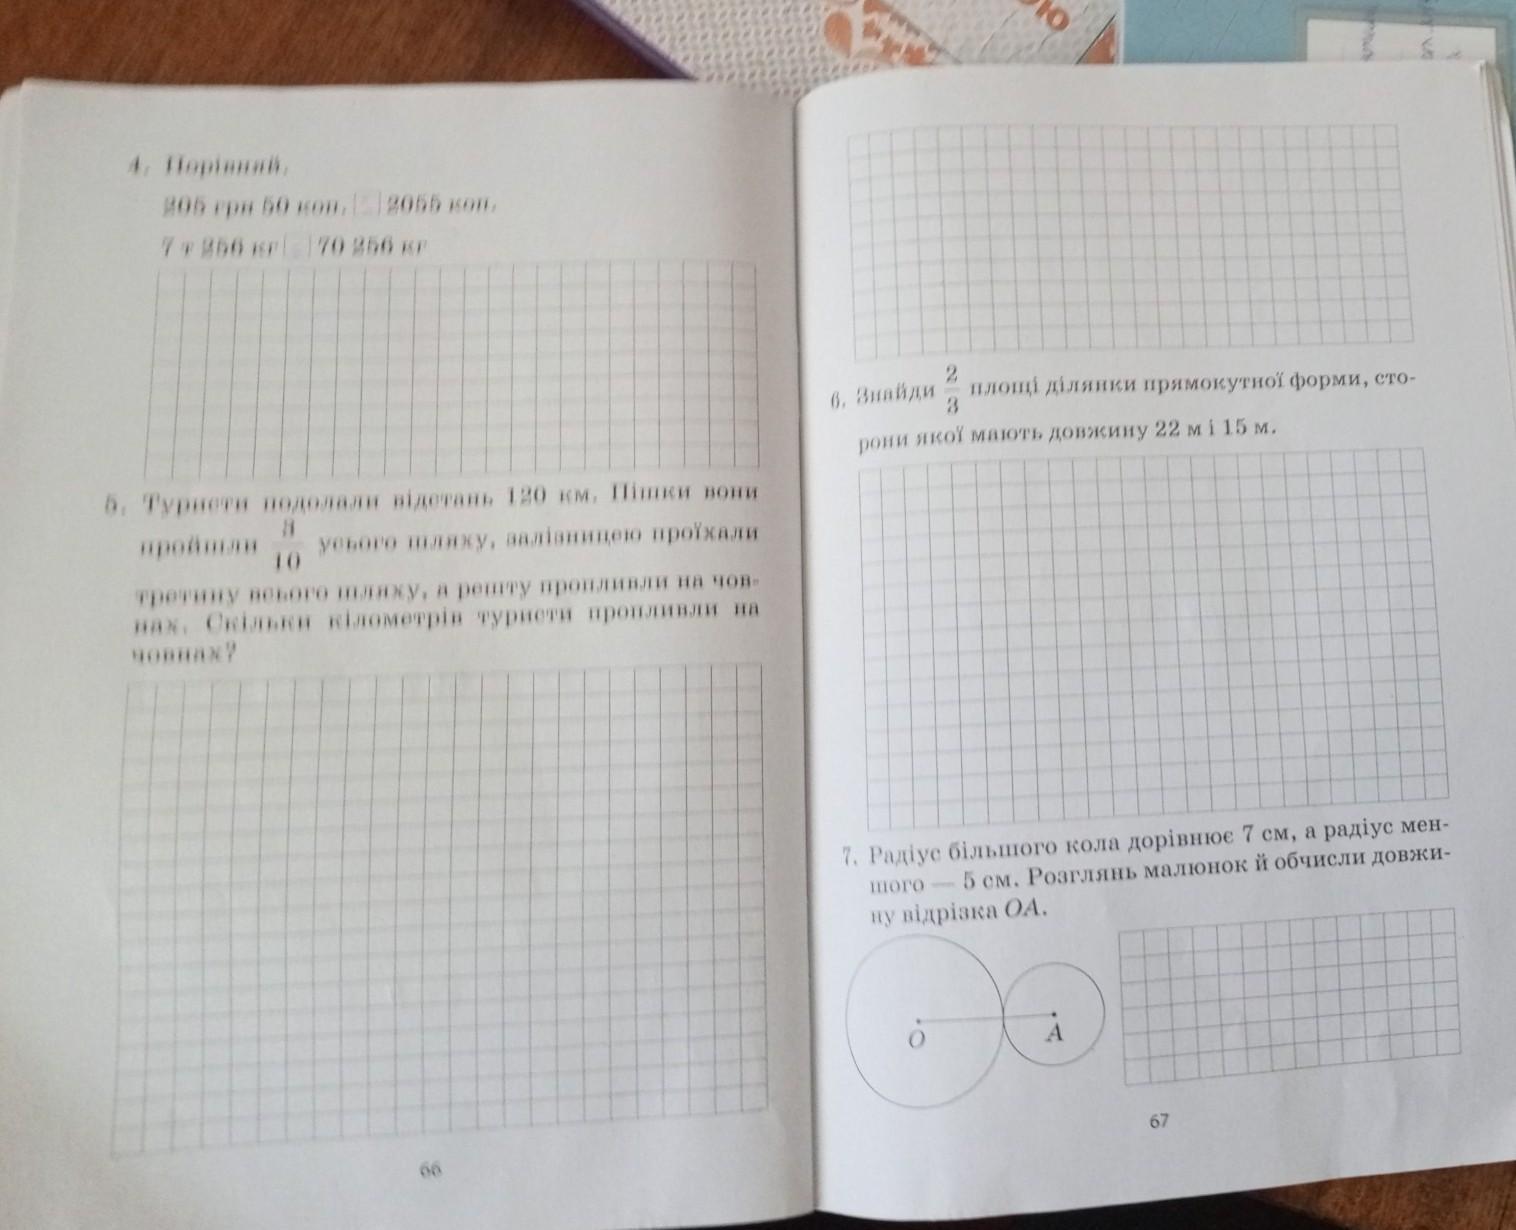 4. Порівняй.
205 грн 50 коп. 2055 коп.
7 т 256 кг 70 256 кг
5. Туристи подолали відстань 120 км. Пішки вони
пройшли 3/10 усього шляху, залізницею проїхали
третину всього шляху, а решту пропливли на чов-
нах. Скільки кілометрів туристи пропливли на
човнах?
66
6. Знайди 2/3 площі ділянки прямокутної форми, сто-
рони якої мають довжину 22 м і 15 м.
7. Радіус більшого кола дорівнює 7 см, а радіус мен-
шого — 5 см. Розглянь малюнок й обчисли довжи-
ну відрізка OA.
O
A
67